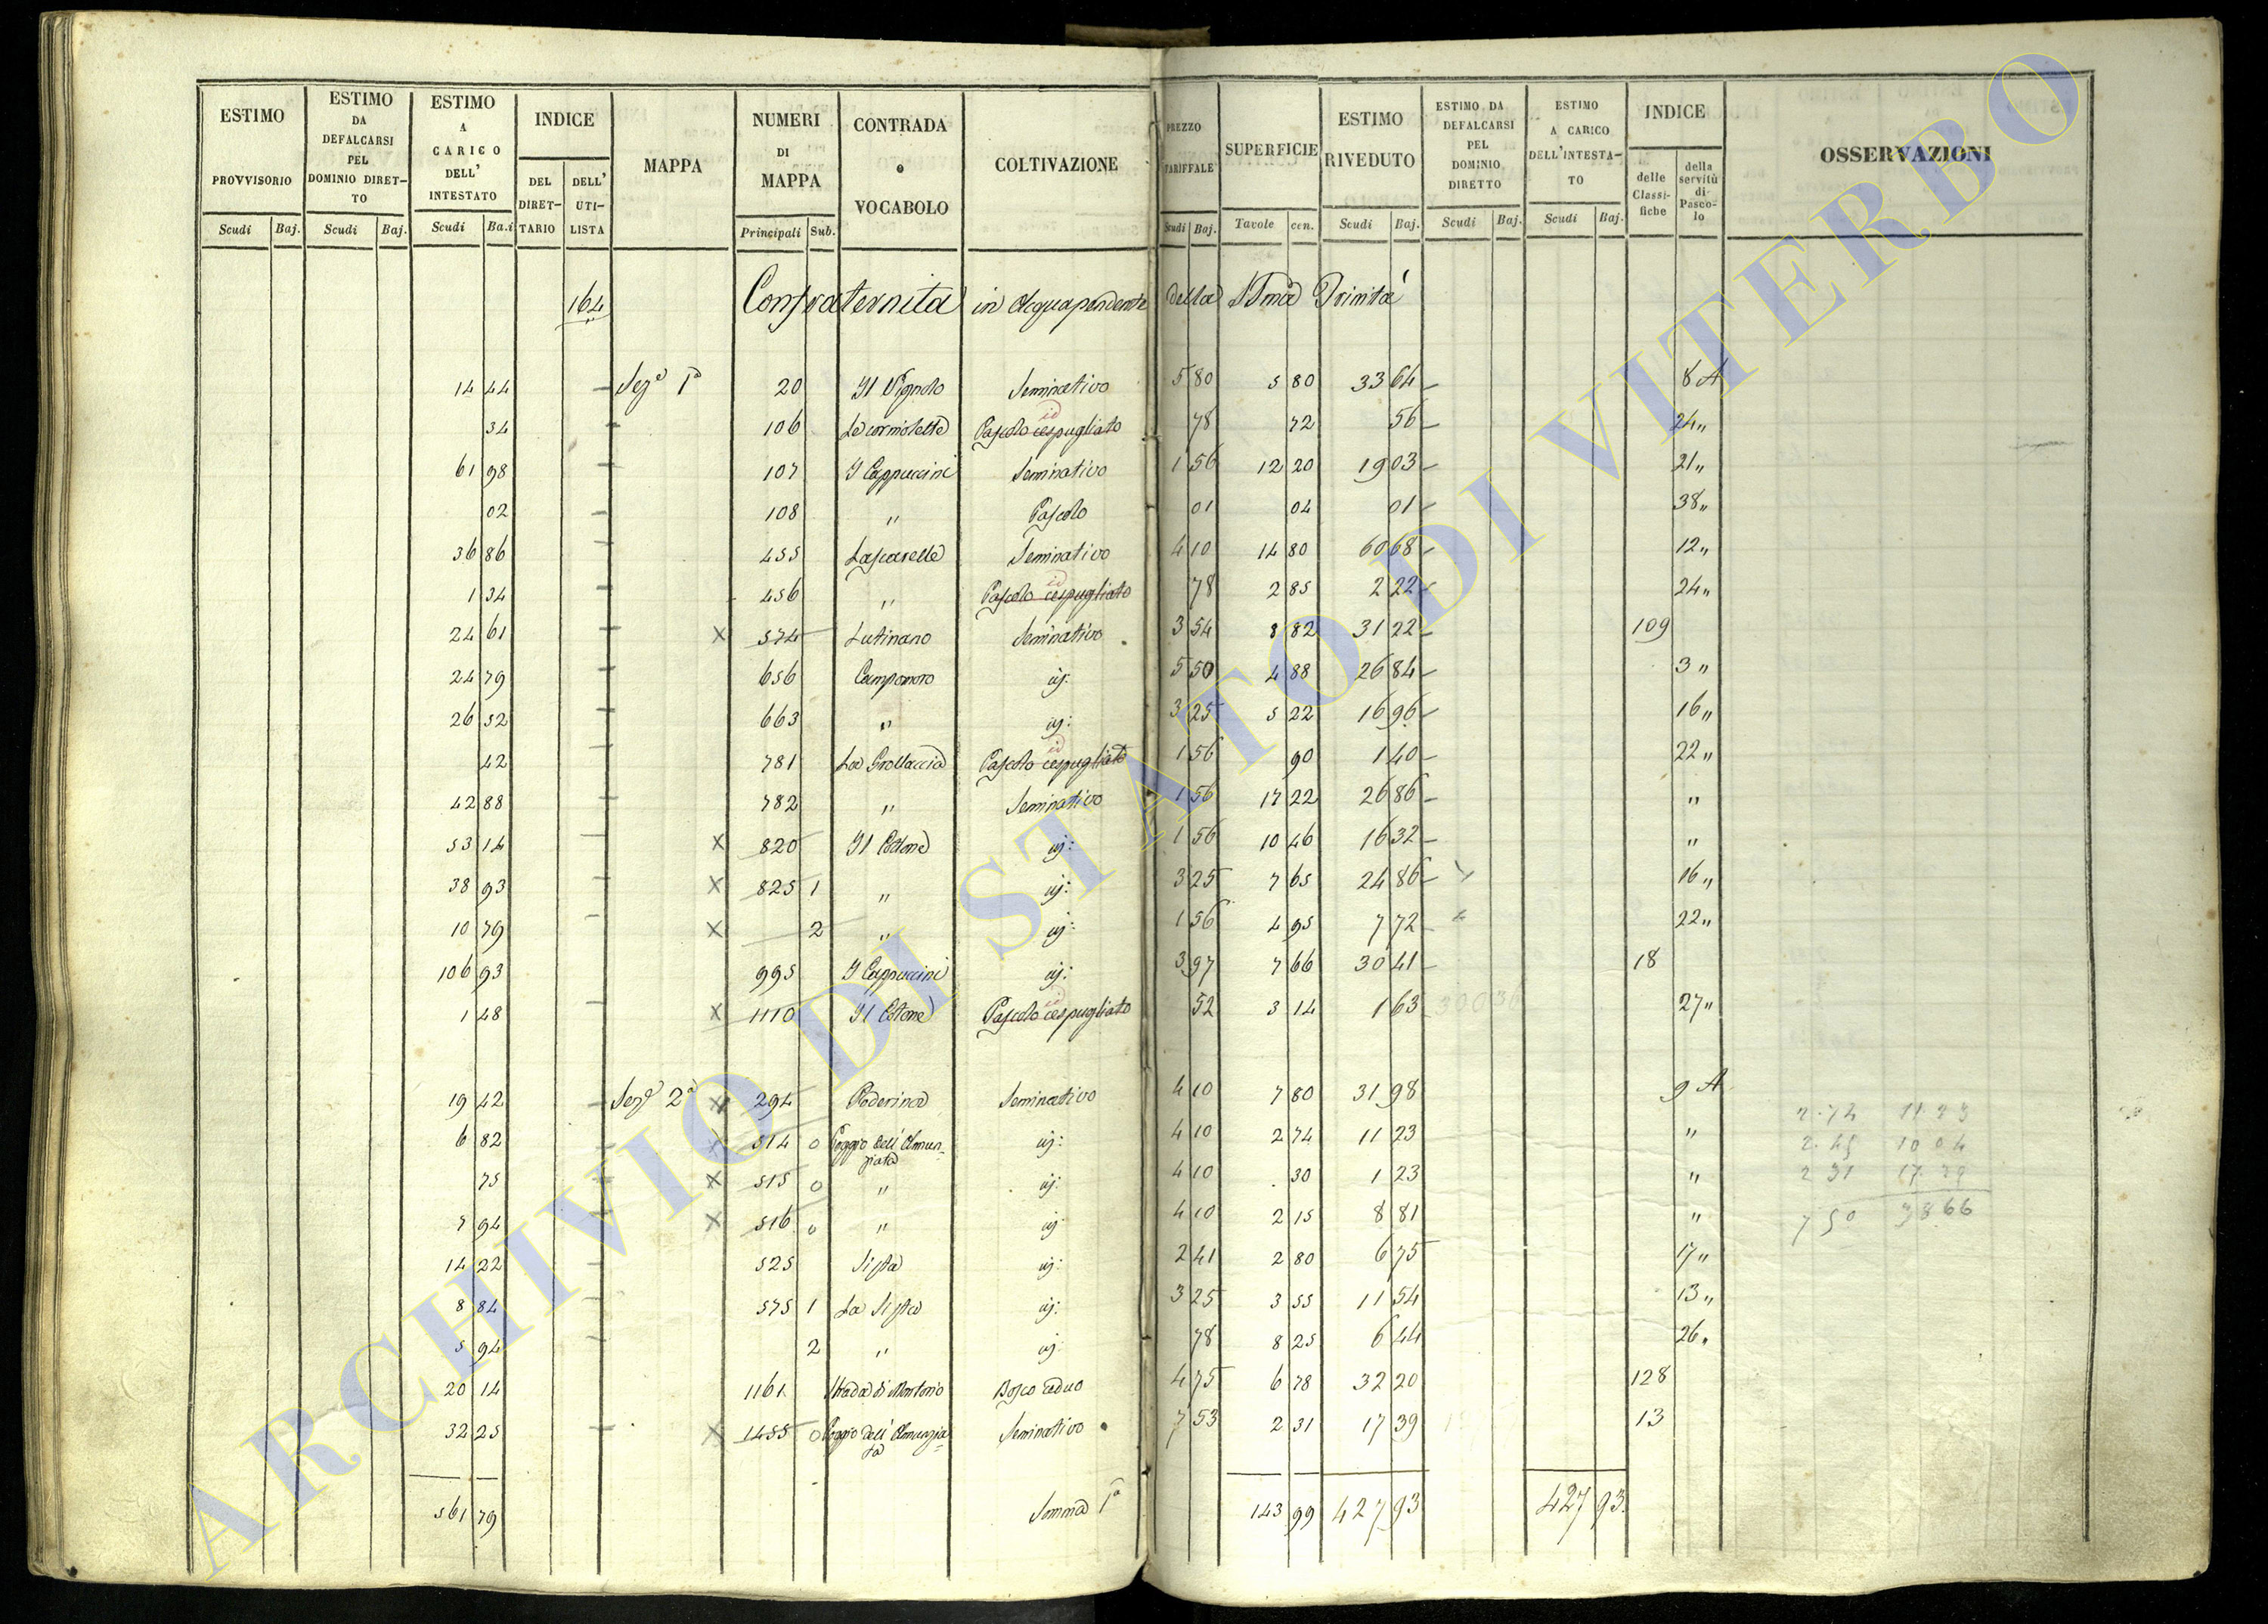 ESTIMO PROVVISORIO
ESTIMO DA DEFALCARSI PEL DOMINIO DIRET-TO
ESTIMO A CARICO DELL' INTESTATO
INDICE
DEL DIRET-TARIO
DELL' UTI-LISTA
MAPPA
NUMERI DI MAPPA
CONTRADA o VOCABOLO
COLTIVAZIONE
PREZZO TARIFFALE
SUPERFICIE
ESTIMO RIVEDUTO
ESTIMO DA DEFALCARSI PEL DOMINIO DIRETTO
ESTIMO A CARICO DELL'INTESTA-TO
INDICE
delle Classi-fiche
della servitù di Pasco-lo
OSSERVAZIONI
Scudi Baj. Scudi Baj. Scudi Ba.i Principali Sub. Scudi Baj. Tavole cen. Scudi Baj. Scudi Baj. Scudi Baj.
164 Confraternita in Acquapendente della SSma Trinità
14 44 Sez.e 1a 20 Il Vignolo Seminativo 5 80 5 80 33 64 8 A
34 106 Le cormolette Pascolo cespugliato id 78 72 56 24 "
61 98 107 I Cappuccini Seminativo 1 56 12 20 19 03 21 "
02 108 " Pascolo 01 04 01 38 "
36 86 455 Lascarelle Seminativo 4 10 14 80 60 68 12 "
1 34 456 " Pascolo cespugliato id 78 2 85 2 22 24 "
24 61 X 574 Lutinano Seminativo 3 54 8 82 31 22 109
24 79 656 Campomoro id: 5 50 4 88 26 84 3 "
26 52 663 " id: 3 25 5 22 16 96 16 "
42 781 La Grottaccia Pascolo cespugliato id 1 56 90 1 40 22 "
42 88 782 " Seminativo 1 56 17 22 26 86 "
53 14 X 820 Il Cotone id: 1 56 10 46 16 32 "
38 93 X 825 1 " id: 3 25 7 65 24 86 16 "
10 79 X 2 " id: 1 56 4 95 7 72 22 "
106 93 995 I Cappuccini id: 3 97 7 66 30 41 18
1 48 X 1110 Il Cotone Pascolo cespugliato id 52 3 14 1 63 27 "
19 42 Sez.e 2a X 294 Poderina Seminativo 4 10 7 80 31 98 9 A
6 82 X 514 0 Poggio dell' Annun-ziata id: 4 10 2 74 11 23 "
75 X 515 0 " id: 4 10 30 1 23 "
5 94 X 516 0 " id 4 10 2 15 8 81 "
14 22 525 Sista id: 2 41 2 80 6 75 17 "
8 84 575 1 La Sista id: 3 25 3 55 11 54 13 "
5 94 2 " id 78 8 25 6 44 26 "
20 14 1161 Strada di Montorio Bosco ceduo 4 75 6 78 32 20 128
32 25 X 1455 0 Poggio dell' Annunzia-ta Seminativo 7 53 2 31 17 39 13
2.74 11.23
2.45 10 04
2 31 17.39
7 50 38 66
561 79 Somma 1a 143 99 427 93 427 93
ARCHIVIO DI STATO DI VITERBO